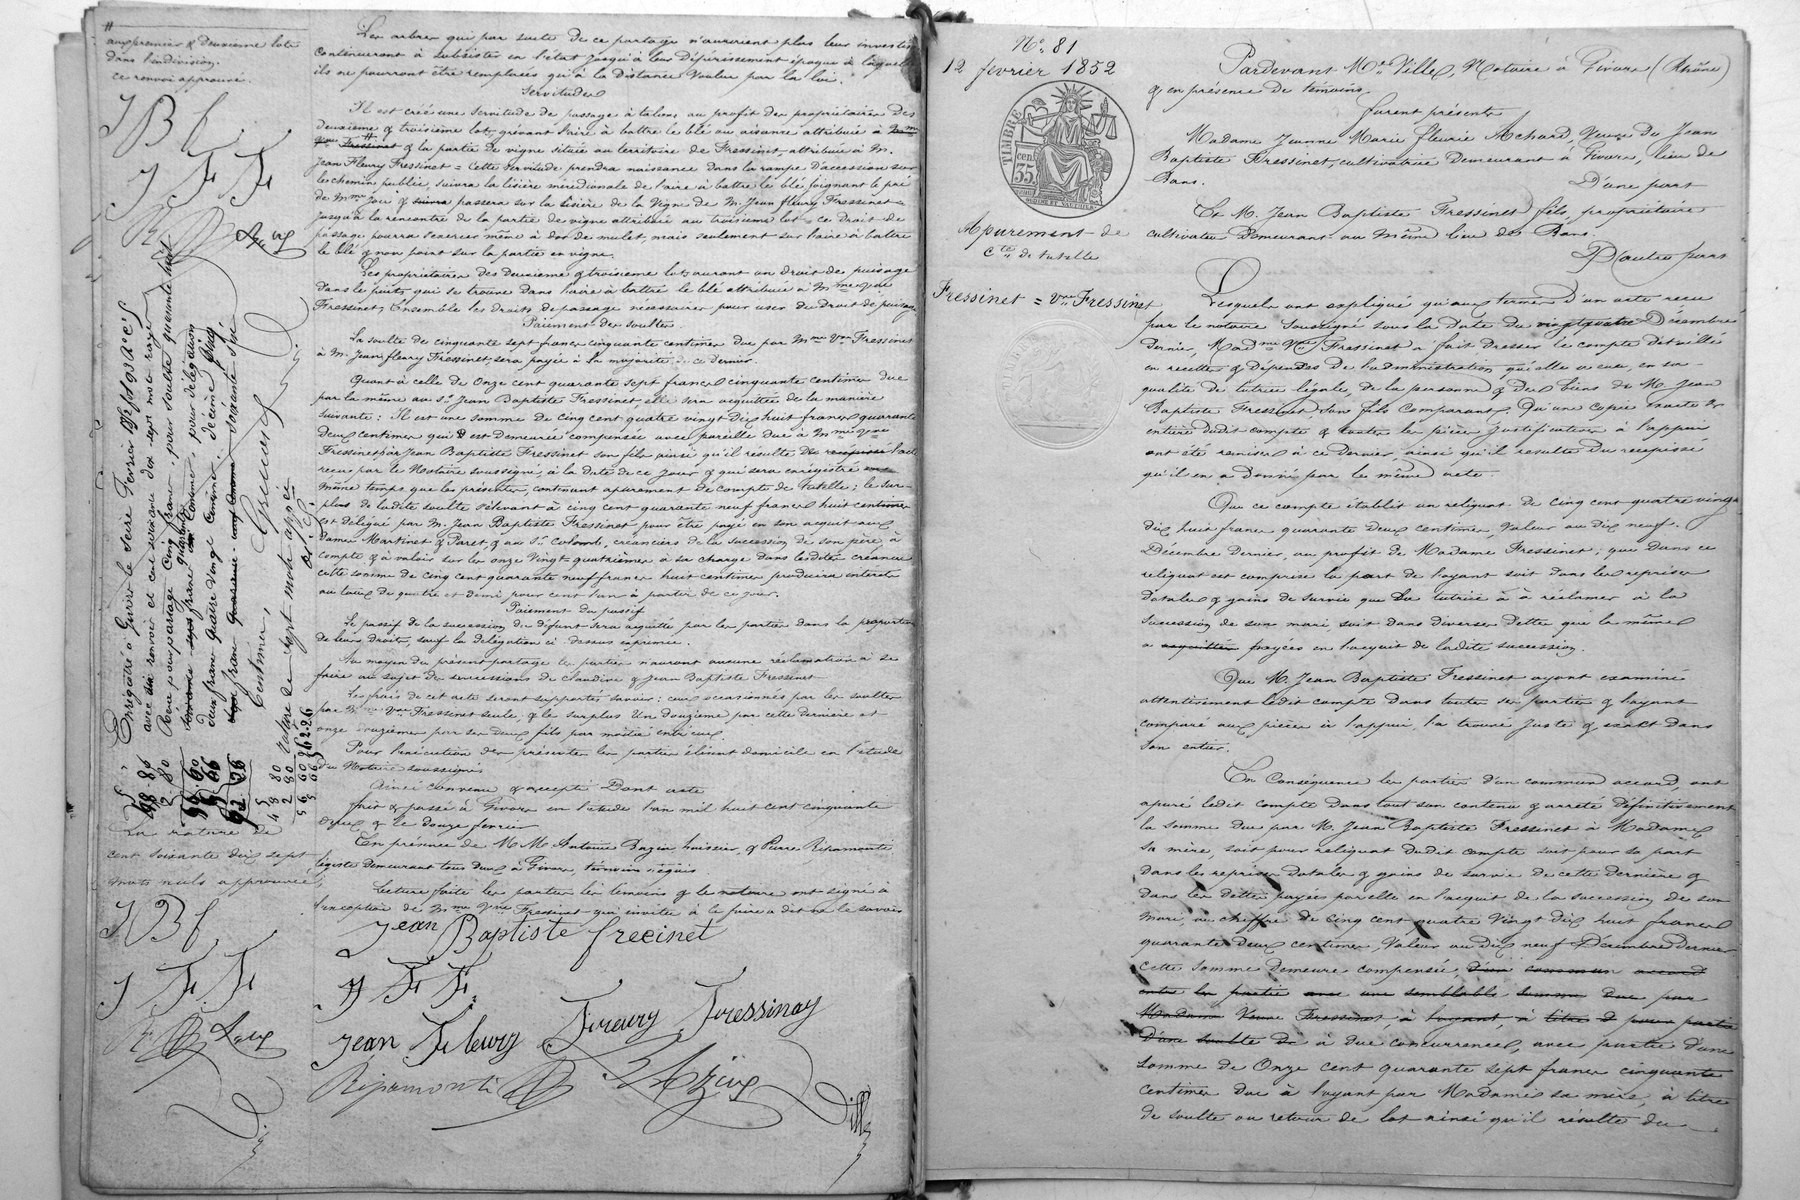 aux premier & deuxième lots
dans l'indivision.
ce renvoi approuvé.
J B f
J F F
Les arbres qui par suite de ce partage n'auraient plus leur
continueront à subsister en l'état jusqu'à leur dépérissement époque à laquelle
ils ne pourront être remplacés qu'à la distance voulue par la loi.
Servitudes
Il est créé une servitude de passage à talons au profit des propriétaires des
deuxième & troisième lots, grévant l'aire à battre le blé ou aisance attribuée à Mme
Vve Fressinet & la partie de vigne située au territoire de Fressinet, attribuée à M.
Jean Fleury Fressinet = Cette servitude prendra naissance dans la rampe d'accession sur
le chemin public, suivra la lisière méridionale de l'aire à battre le blé joignant le pré
de Mme & suivra passera sur la lisière de la Vigne de M. Jean fleury Fressinet
jusqu'à la rencontre de la partie de vigne attribuée au troisième lot = ce droit de
passage pourra s'exercer même à dos de mulet, mais seulement sur l'aire à battre
le blé & non point sur la partie en vigne.
Les propriétaires des deuxième & troisième lots auront un droit de puisage
dans le puits qui se trouve dans l'aire à battre le blé attribuée à Mme Vve
Fressinet, Ensemble les droits de passage nécessaires pour user du droit de puisage
Paiement des soultes
La soulte de cinquante sept francs cinquante centimes due par Mme Vve Fressinet
à M. Jean fleury Fressinet, sera payée à la majorité de ce dernier.
Quant à celle de Onze cent quarante sept francs cinquante centimes due
par la même au sr Jean Baptiste Fressinet, elle sera acquittée de la manière
suivante: Il est une somme de Cinq cent quatre vingt dix huit francs quarante
deux centimes qui est demeurée compensée avec pareille due à Mme Vve
Fressinet par Jean Baptiste Fressinet son fils ainsi qu'il résulte du récépissé l'acte
reçu par le Notaire soussigné, à la date de ce jour & qui sera enregistré en
même temps que les présentes, contenant apurement de compte de tutelle; le sur=
plus de ladite soulte s'élevant à cinq cent quarante neuf francs huit centimes
est délégué par M. Jean Baptiste Fressinet pour être payé en son acquit aux
Dames Martinet & Paret, & au Sr Colomb, créanciers de la succession de son père, à
compte & à valoir sur les onze Vingt=quatrièmes à sa charge dans lesdites créances
cette somme de cinq cent quarante neuf francs huit centimes produira intérêts
au taux de quatre et demi pour cent l'an à partir de ce jour.
Paiement du passif
Le passif de la succession du défunt sera acquitté par les parties dans la proportion
de leurs droits, sauf la délégation ci dessus exprimée.
Au moyen du présent partage les parties n'auront aucune réclamation à se
faire au sujet des successions de Claudine & Jean Baptiste Fressinet
Les frais de cet acte seront supportés savoir: ceux occasionnés par les soultes
par Mme Vve Fressinet seule, & le surplus Un douzième par cette dernière et
onze douzièmes par ses deux fils par moitié entr'eux.
Pour l'exécution des présentes les parties élisent domicile en l'étude
du Notaire soussigné
Ainsi convenu & accepté Dont acte
fait & passé à Givors en l'étude l'an mil huit cent cinquante
deux & le douze février
En présence de MM Antoine Bazin huissier, & Pierre Ripamonti
légiste demeurant tous deux à Givors, témoins requis.
Lecture faite les parties les témoins & le notaire ont signé à
l'exception de Mme Vve Fressinet qui invitée à le faire a dit ne le savoir
Jean Baptiste frecinet
J F F
Jean Fleury Freury Fressinay
Ripamonti
Ville
Enregistré à Givors le seize Février
avec renvoi et
Reçu pour partage Cinq francs, pour soulte quarante huit
francs quarante centimes, pour délégation
deux francs quatre vingt centimes, décime cinq
francs soixante six
Centimes,
rature de sept mots app ée
La rature de
cent soixante dix sept
mots nuls approuvée,
J B f
J F F
No 81
12 fevrier 1852
TIMBRE
35 cen
Apurement de
Cte de tutelle
Fressinet = Vve Fressinet
Pardevant Me Ville, Notaire à Givors (Rhône)
& en présence de témoins
furent présents
Madame Jeanne Marie fleurie Achard, Veuve de Jean
Baptiste Fressinet, cultivatrice demeurant à Givors, lieu de
Bans.
D'une part
Et M. Jean Baptiste Fressinet fils, propriétaire
cultivateur demeurant au même lieu de Bans.
D'autre part
Lesquels ont expliqué qu'aux termes d'un acte reçu
par le notaire soussigné sous la date du vingt quatre Décembre
dernier, Madme Vve Fressinet a fait dresser le compte détaillé
en recettes & dépenses de l'administration qu'elle a eue, en sa
qualité de tutrice légale, de la personne & des biens de M. Jean
Baptiste Fressinet son fils comparant, Qu'une copie exacte &
entière dudit compte & toutes les pièces justificatives à l'appui
ont été remises à ce dernier, ainsi qu'il résulte du récépissé
qu'il en a donné par le même acte.
Que ce compte établit un reliquat de cinq cent quatre vingt
dix huit francs quarante deux centimes, valeur au dix neuf
Décembre dernier, au profit de Madame Fressinet; que dans ce
reliquat est comprise la part de l'oyant soit dans les reprises
dotales & gains de survie que la tutrice a à réclamer à la
succession de son mari, soit dans diverses dettes que la même
a acquittées payées en l'acquit de ladite succession.
Que M. Jean Baptiste Fressinet ayant examiné
attentivement ledit compte dans toutes ses parties & l'ayant
comparé aux pièces à l'appui, l'a trouvé juste & exact dans
son entier.
En Conséquence les parties d'un commun accord, ont
apuré ledit compte dans tout son contenu & arrêté définitivement
la somme due par M. Jean Baptiste Fressinet à Madame
sa mère, soit pour reliquat dudit compte soit pour sa part
dans les reprises dotales & gains de survie de cette dernière &
dans les dettes payées par elle en l'acquit de la succession de son
mari, au chiffre de cinq cent quatre vingt dix huit francs
quarante deux centimes, valeur au dix neuf Décembre dernier
cette somme demeure compensée, d'un commun accord
entre les parties avec une semblable somme due par
Madame Veuve Fressinet, à l'oyant, à titre
d'une soulte de à due concurrence, avec partie d'une
somme de Onze cent quarante sept francs cinquante
centimes due à l'oyant par Madame sa mère, à titre
de soulte ou retour de lot ainsi qu'il résulte du